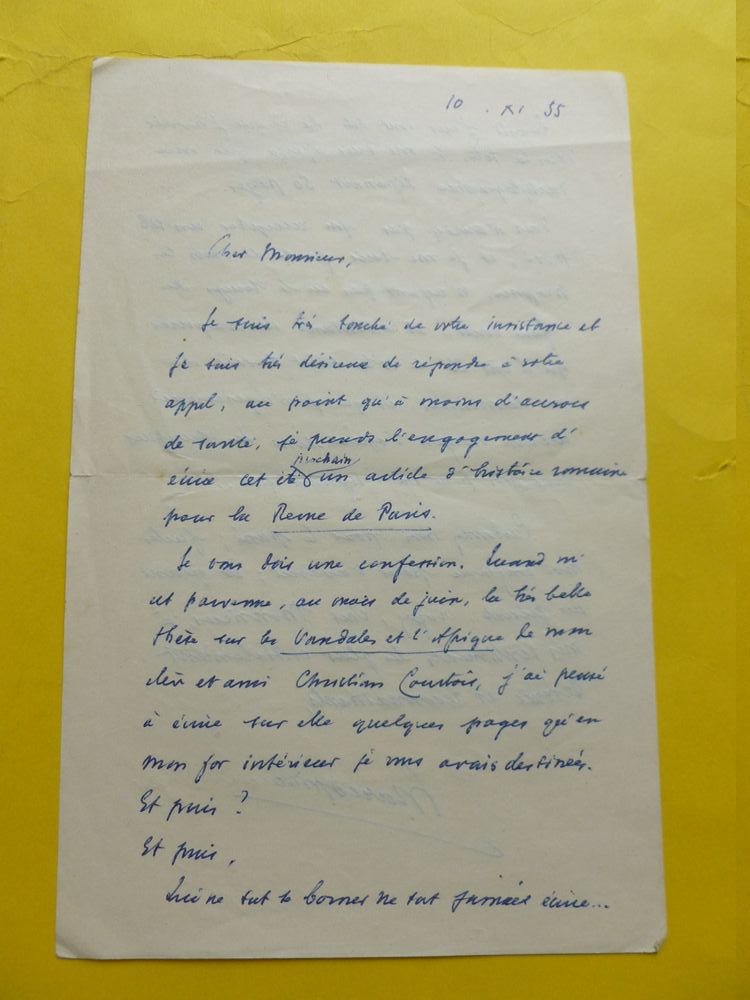 10 . XI 55
Cher Monsieur,
Je suis très touché de votre insistance et
je suis très désireux de répondre à votre
appel, au point qu'à moins d'accrocs
de santé, je prends l'engagement d'
écrire cet été prochain un article d'histoire romaine
pour la Revue de Paris.
Je vous dois une confession. Quand m'
est parvenue, au mois de juin, la très belle
thèse sur les Vandales et l'Afrique de mon
élève et ami Christian Courtois, j'ai pensé
à écrire sur elle quelques pages qu'en
mon for intérieur je vous avais destinées.
Et puis ?
Et puis,
Qui ne sut se borner ne sut jamais écrire...